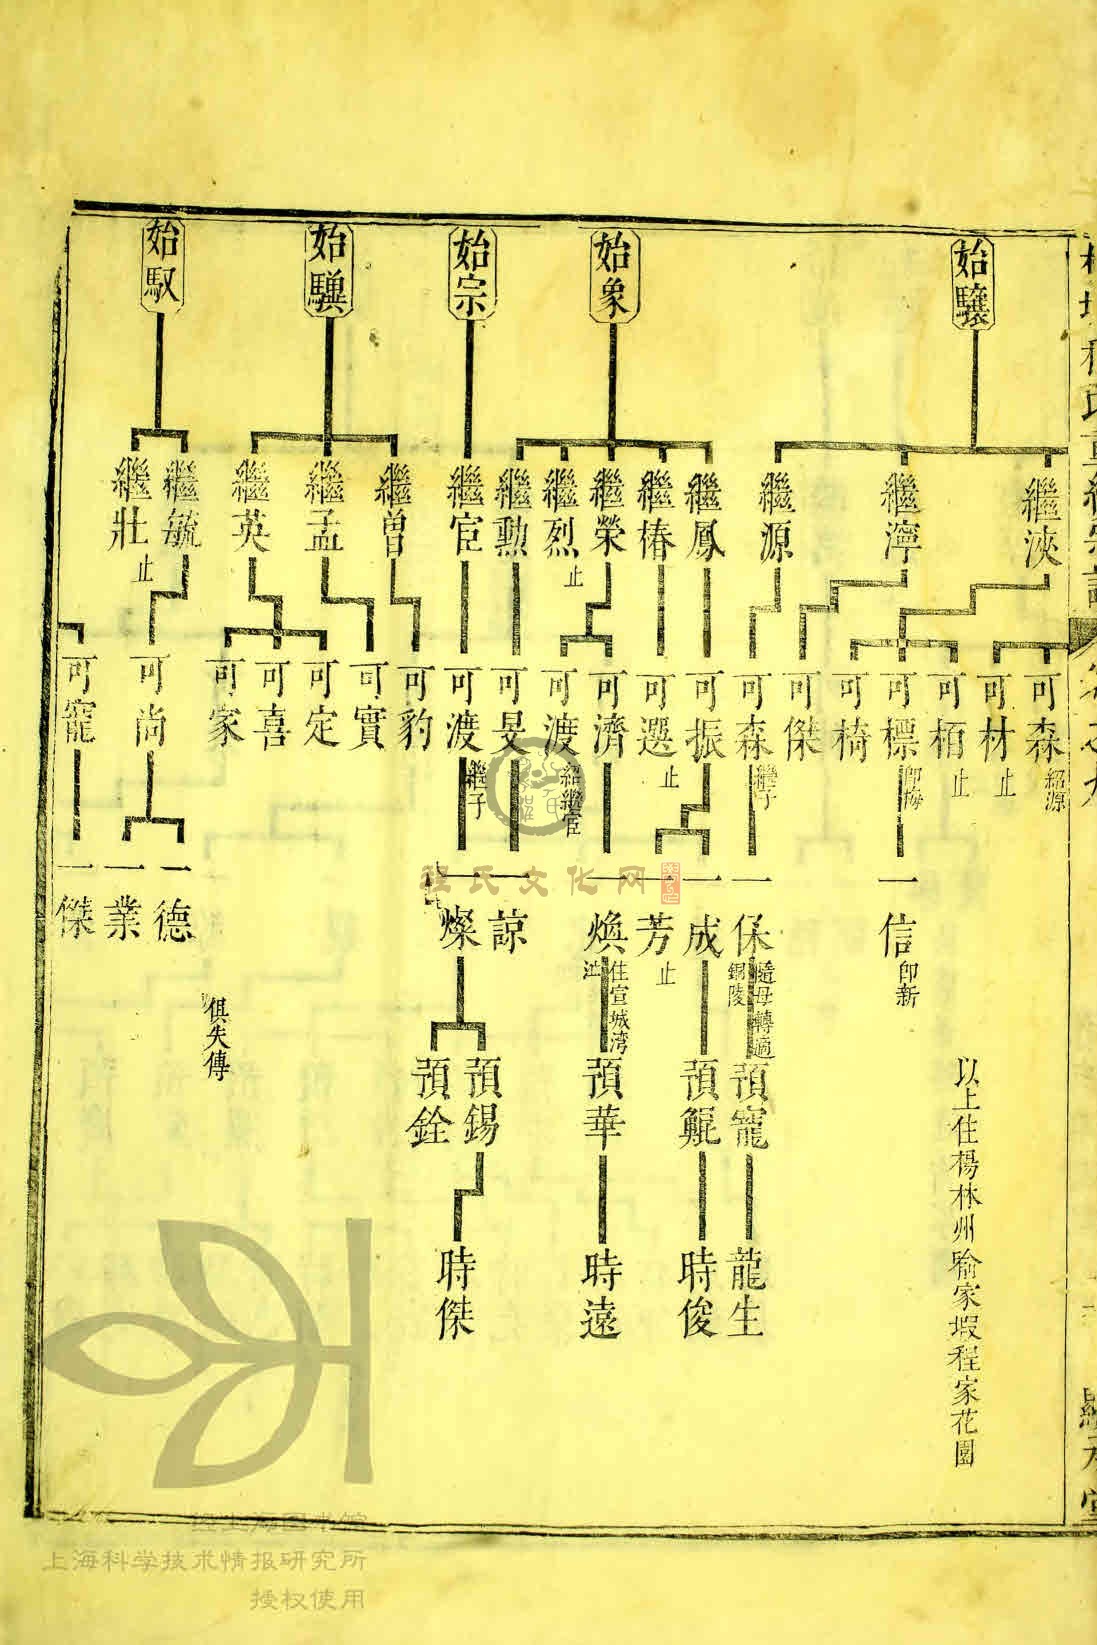 始驤
始象
始宗
始驥
始馭
繼浹
繼濘
繼源
繼鳳
繼椿
繼榮
繼烈 止
繼勲
繼宦
繼曾
繼孟
繼英
繼毓
繼壯 止
可森 紹源
可材 止
可栢 止
可標 即梅
可椅
可傑
可森 繼子
可振
可選 止
可濟
可渡 紹繼宦
可旻
可渡 繼子
可豹
可實
可定
可喜
可家
可尚
可寵
一信 即新
一保 隨母轉適銅陵
一成
一芳 止
一煥 住宣城湾沚
一諒
一燦
一德
一業
一傑
俱失傳
預寵
預鯤
預華
預錫
預銓
龍生
時俊
時遠
時傑
以上住楊林州喻家塅程家花園
程氏文化网
上海科学技术情报研究所
授权使用